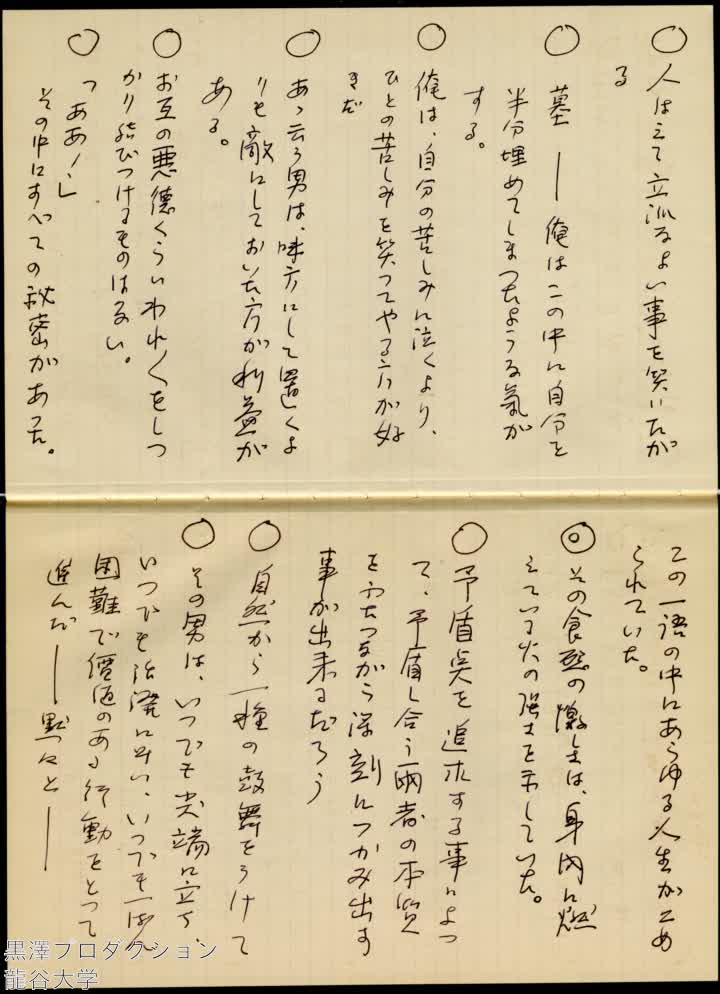 ○ 人はえて立派なよい事を笑いたが
る
○ 墓 ― 俺はこの中に自分を
半分埋めてしまつたような氣が
する。
○ 俺は、自分の苦しみに泣くより、
ひとの苦しみを笑つてやる方が好
きだ
○ あゝ云う男は、味方にして置くよ
りも敵にしておいた方が利益が
ある。
○ お互の悪徳くらいわれ〱をしつ
かり結びつけるものはない。
○ 「ああ!」
その中にすべての秘密があつた。
この一語の中にあらゆる人生がこめ
られていた。
◎ その食慾の激しさは、身内に燃
えている火の強さを示していた。
○ 予盾点を追求する事によつ
て、予盾し合う両者の本質
ながら深刻につかみ出す
事が出来るだろう
○ 自然から一種の鼓舞をうけて
○ その男は、いつでも尖端に立ち、
いつでも活溌に斗い、いつでも一ばん
困難で價値のある行動をとつて
進んだ――黙々と――
黒澤プロダクション
龍谷大学